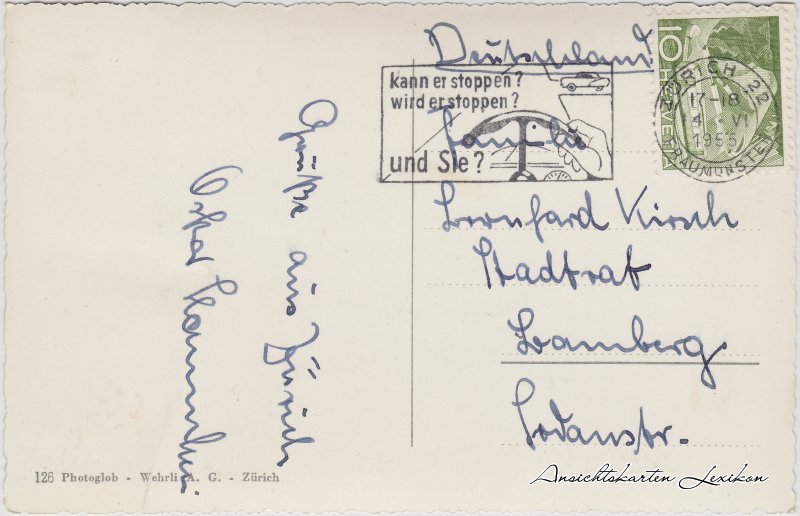 Grüße aus Zürich
126 Photoglob - Wehrli A. G. - Zürich
Deutschland
kann er stoppen?
wird er stoppen?
und Sie?
10
HELVETIA
ZÜRICH 22
17-18
1955
FRAUMÜNSTER
Familie
Bernhard Kirsch
Stadtrat
Bamberg
Sodenstr.
Ansichtskarten Lexikon